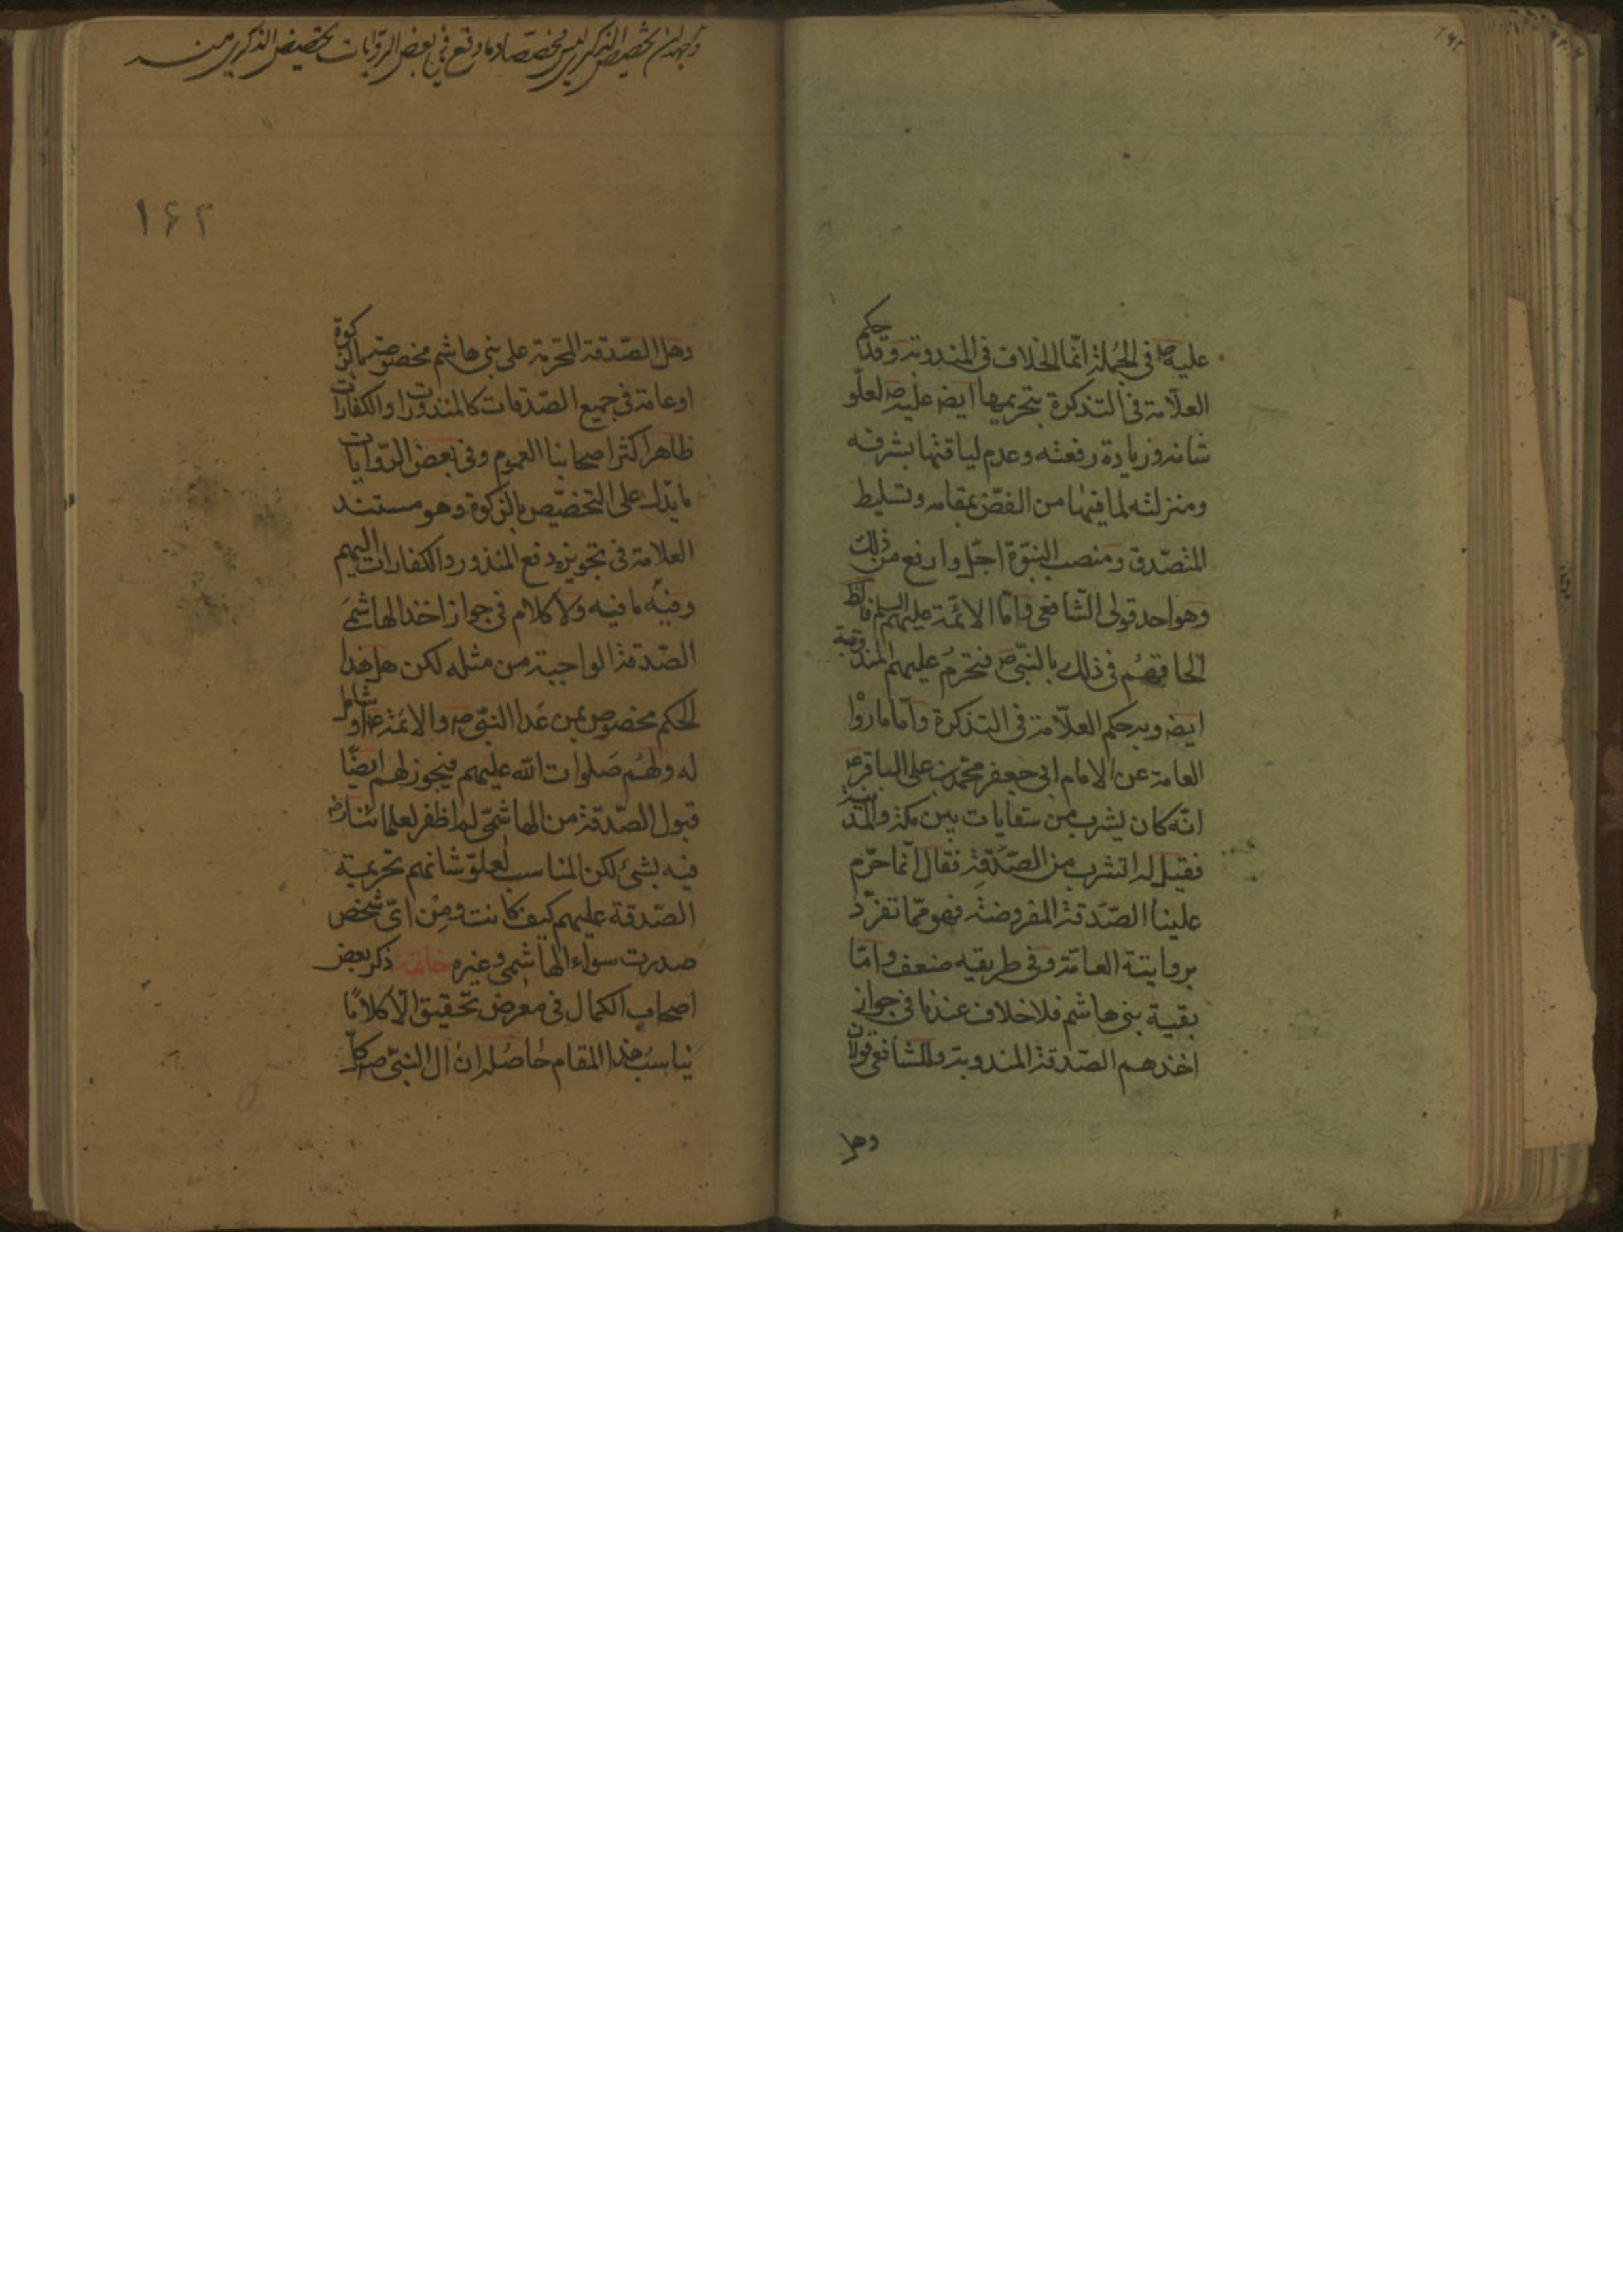 عليه ص في الجملة انما الخلاف في المندوبة وقد حكم
العلامة في التذكرة بتحريمها ايض عليه ص لعلو
شانه وزيادة رفعته وعدم لياقتها بشرفه
ومنزلته لما فيها من الغض بمقامه وتسليط
المتصدق ومنصب النبوة اجل وارفع من ذلك
وهو احد قولى الشافعى واما الائمة عليهم السلم فالظ
الحاقهم في ذلك بالنبى ص فتحرم عليهم المندوبة
ايض وبه حكم العلامة في التذكرة واما ما روا
العامة عن الامام ابى جعفر محمد بن على الباقر ع
انه كان يشرب من سقايات بين مكة والمدينة
فقيل له اتشرب من الصدقة فقال انما حرم
علينا الصدقة المفروضة فهو مما تفرد
بروايتة العامة وفى طريقه ضعف واما
بقية بنى هاشم فلا خلاف عندنا في جواز
اخذهم الصدقة المندوبة وللشافعى قولان
وهل
۱۶۲
وهل الصدقة المحرمة على بنى هاشم مخصوصة بالزكوة
او عامة في جميع الصدقات كالمنذورات والكفارات
ظاهر اكثر اصحابنا العموم وفى بعض الروايات
ما يدل على التخصيص بالزكوة وهو مستند
العلامة في تجويزه دفع المنذور والكفارات اليهم
وفيه ما فيه ولا كلام في جواز اخذ الهاشمى
الصدقة الواجبة من مثله لكن هل هذا
الحكم مخصوص بمن عدا النبى ص والائمة ع او شامل
له ولهم صلوات الله عليهم فيجوز لهم ايضا
قبول الصدقة من الهاشمى لم اظفر لعلمائنا رض
فيه بشئ لكن المناسب لعلو شانهم تحريمية
الصدقة عليهم كيف كانت ومن اى شخص
صدرت سواء الهاشمى وغيره خاتمة ذكر بعض
اصحاب الكمال في معرض تحقيق الآل كلاما
يناسب هذا المقام حاصله ان آل النبى ص كل